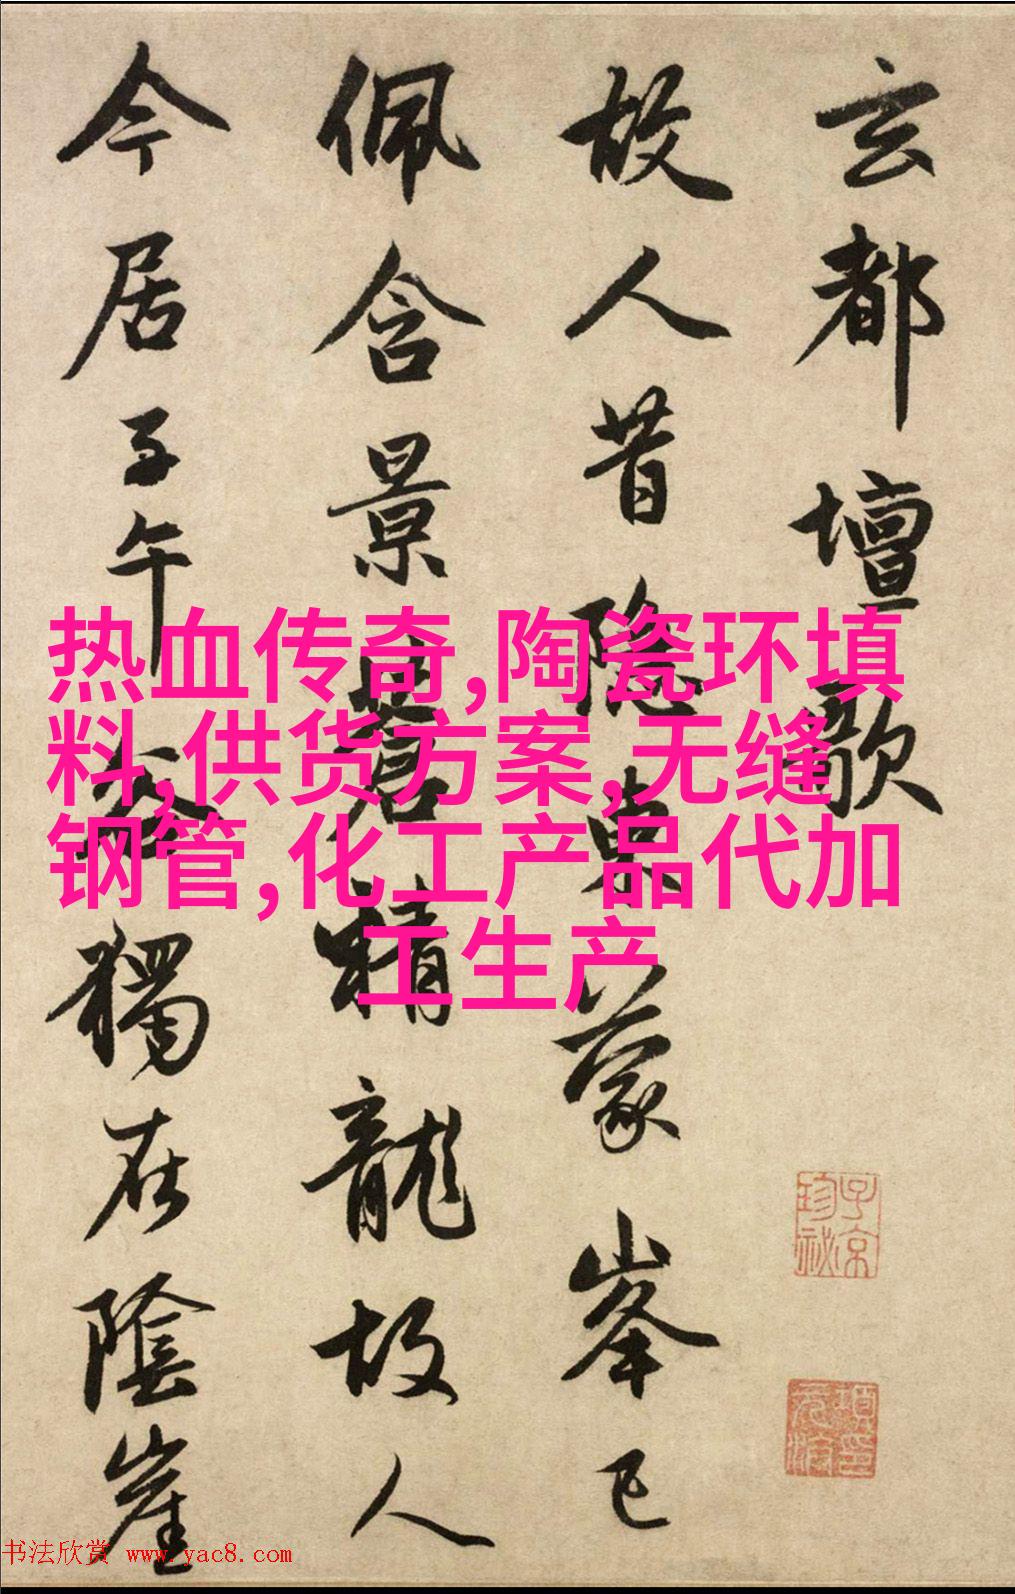 玄都壇歌
故人昔隱東蒙峯已
佩含景蒼精龍故人
今居子午谷獨在陰崖
热血传奇,陶瓷环填
料,供货方案,无缝
钢管,化工产品代加
工生产
子京
珍祕
书法欣赏 www.yac8.com